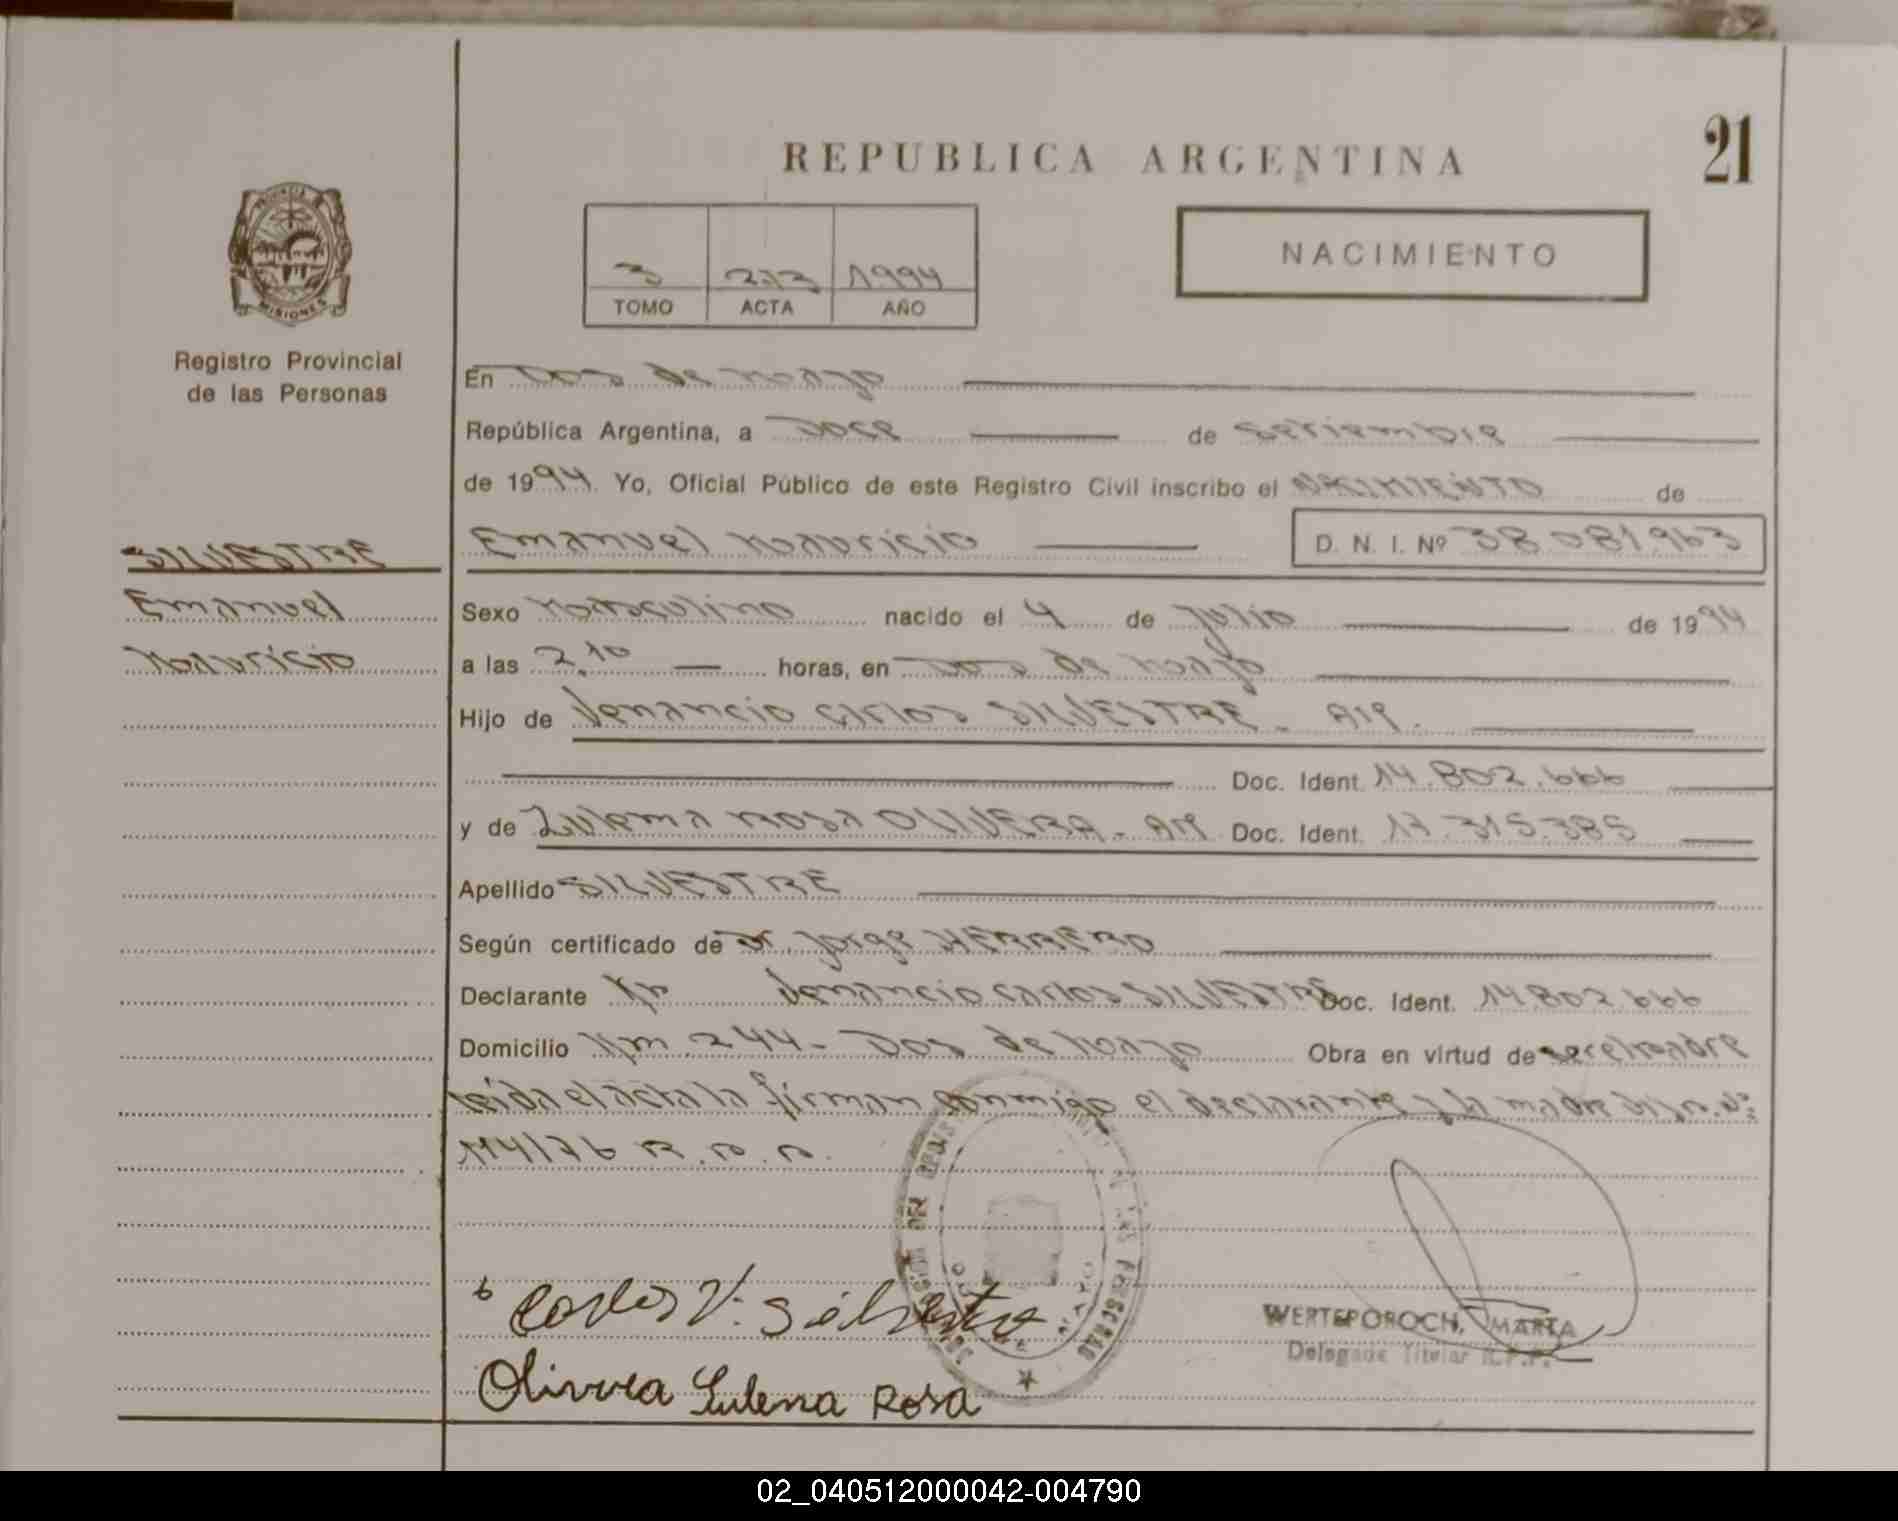 21
REPUBLICA ARGENTINA
NACIMIENTO
3 213 1994
TOMO ACTA AÑO
PROVINCIA DE MISIONES
Registro Provincial
de las Personas
En Dos de Mayo
República Argentina, a Doce de Setiembre
de 1994. Yo, Oficial Público de este Registro Civil inscribo el NACIMIENTO de
Emanuel Mauricio D. N. I. Nº 38 081963
SILVESTRE
Emanuel
Mauricio
Sexo Masculino nacido el 4 de Julio de 1994
a las 2.10 horas, en Dos de Mayo
Hijo de Venancio Carlos SILVESTRE - Arg.
Doc. Ident. 14.802.666
y de Zulema Rosa OLIVERA - Arg Doc. Ident. 17.315.385
Apellido SILVESTRE
Según certificado de Dr. Jorge HERRERO
Declarante Venancio Carlos SILVESTRE Doc. Ident. 14.802.666
Domicilio Km 244 - Dos de Mayo Obra en virtud de ser el padre
leída el acta la firman conmigo el declarante y la madre Nº
114/76
Carlos V. Silvestre
Olivera Zulema Rosa
WERTEPOROCH, MARTA
Delegada Titular R.P.P.
02_040512000042-004790